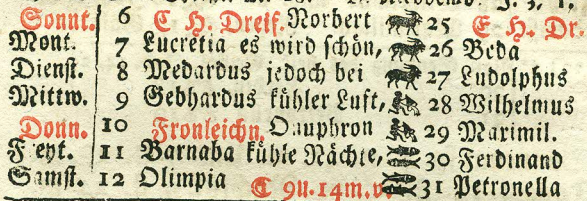 Sonnt. 6 C H. Dreif. Norbert 25 E H. Dr.
Mont. 7 Lucretia es wird ſchön, 26 Beda
Dienſt. 8 Medardus jedoch bei 27 Ludolphus
Mittw. 9 Gebhardus kühler Luft, 28 Wilhelmus
Donn. 10 Fronleichn. Onuphron 29 Maximil.
Freyt. 11 Barnaba kühle Nächte, 30 Ferdinand
Samſt. 12 Olimpia C 9u. 14m. v. 31 Petronella